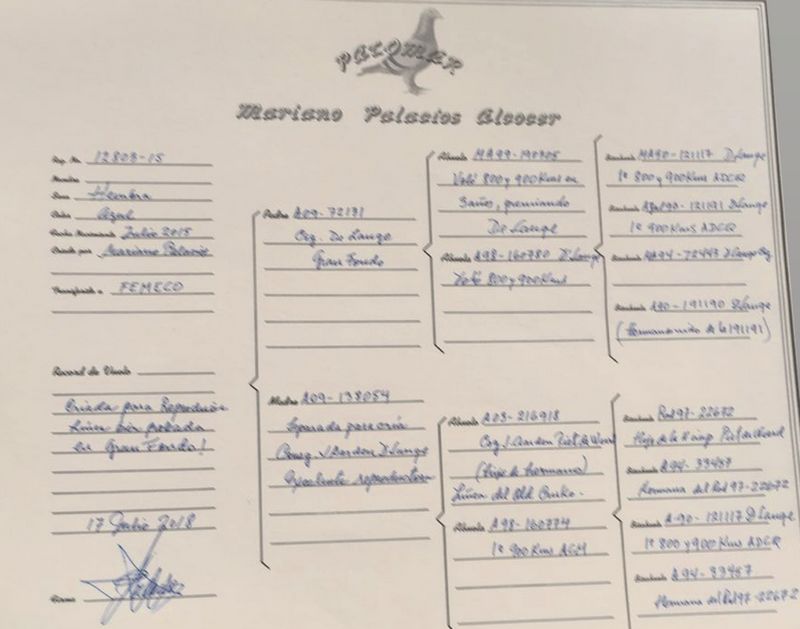 PALOMAR
Mariano Palacios Alcocer
Rep. No. 12803-15
Nombre
Sexo Hembra
Color Azul
Fecha Nacimiento Julio 2015
Criado por Mariano Palacios
Transferido a FEMECO
Record de Vuelo
Criada para Reproducción
Línea bien probada
en Gran Fondo!
17 Julio 2018
Firma
Padre A09-72131
Orig. De Lange
Gran Fondo
Madre A09-138054
Separada para cría
Consg. J Dardon D Lange
Excelente reproductora
Abuelo MA99-190305
Voló 800 y 900 Kms en
3 años, premiando
De Lange
Abuela A98-160780 D'Lange
Voló 800 y 900 Kms
Abuelo A03-216918
(hijo de hermano)
Línea del Old
Abuela A98-160774
1º 900 Kms ACM
Bisabuelo MA90-121117 D Lange
1º 800 y 900 Kms ADCQ
Bisabuela 90-121191 D Lange
1º 900 Kms ADCQ
Bisabuelo MA94-72443 D Lange
Bisabuela A90-191190 D Lange
(Hermana de la 191191)
Bisabuelo Bel 97-22672
Bisabuela A94-33487
Hermana del Bel 97-22672
Bisabuelo A-90-121117 D Lange
1º 800 y 900 Kms ADCQ
Bisabuela A94-33487
Hermana del Bel 97-22672